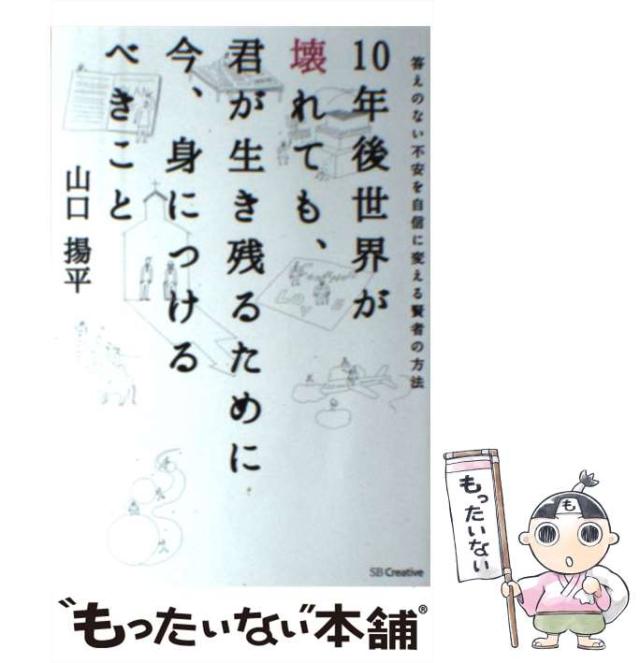 答えのない不安を自信に変える賢者の方法
10年後世界が
壊れても、
君が生き残るために
今、身につける
べきこと
山口 揚平
SB Creative
"もったいない"本舗®
もったいない
も